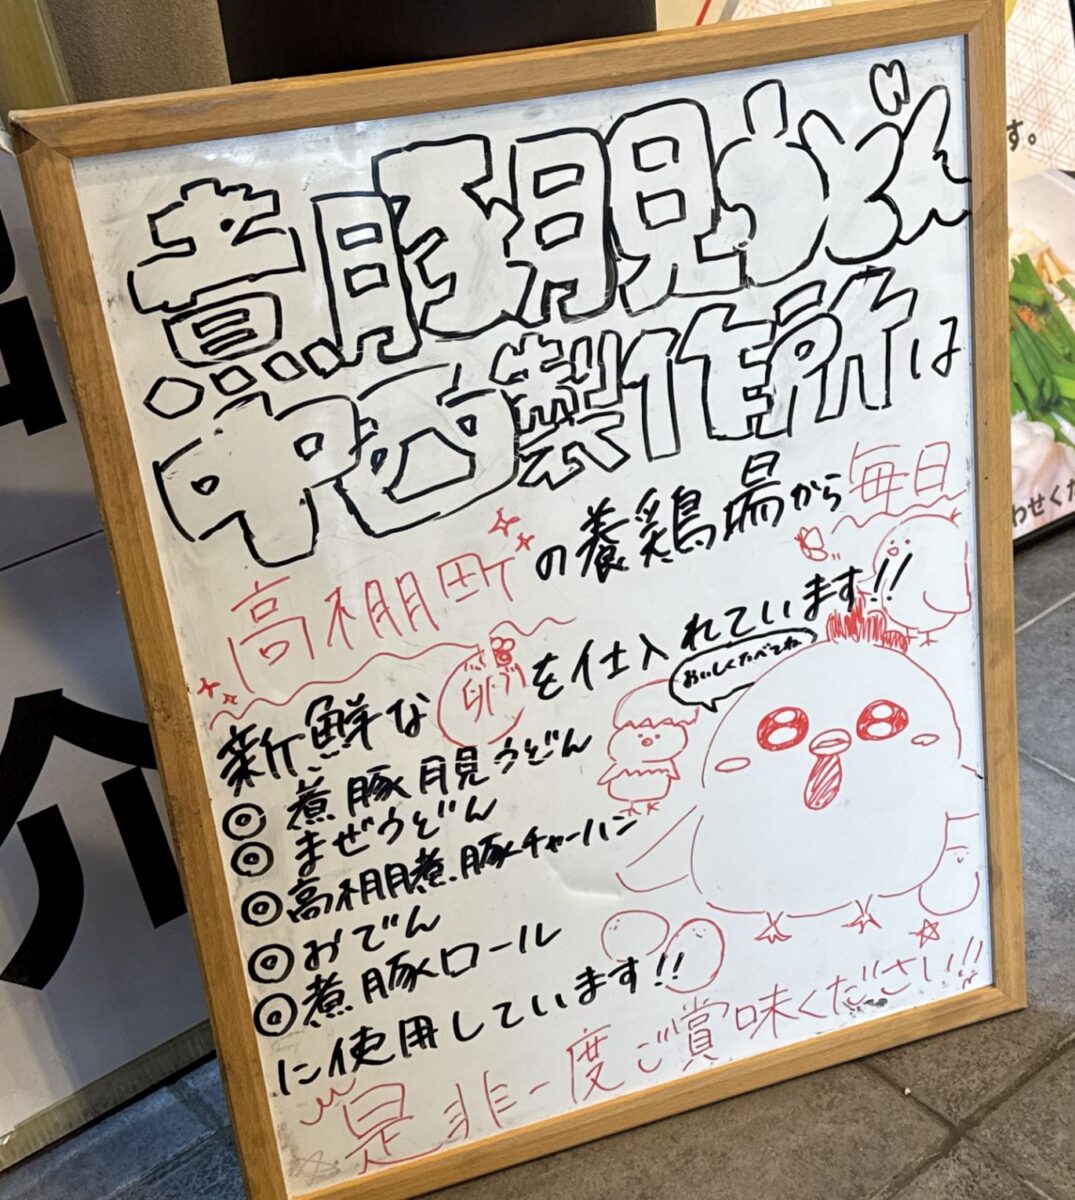 煮豚月見うどん
中西製作所は
高棚町の養鶏場から毎日
新鮮な卵を仕入れています!!
おいしくたべてね
◎煮豚月見うどん
◎まぜうどん
◎高棚煮豚チャーハン
◎おでん
◎煮豚ロール
に使用しています!!
是非一度ご賞味ください!!
す。
わせくだ
介